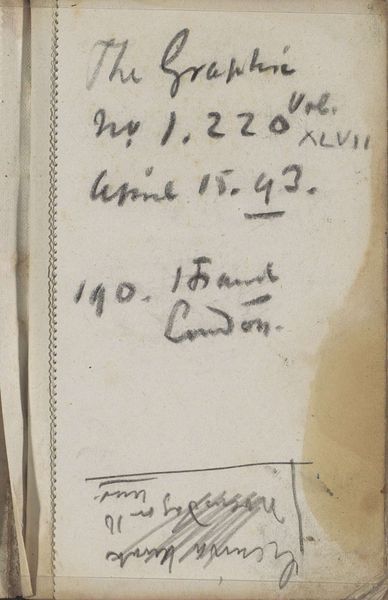 The Graphic
No 1.220 Vol.
XLVII
April 15. 93.
190. Strand
London.